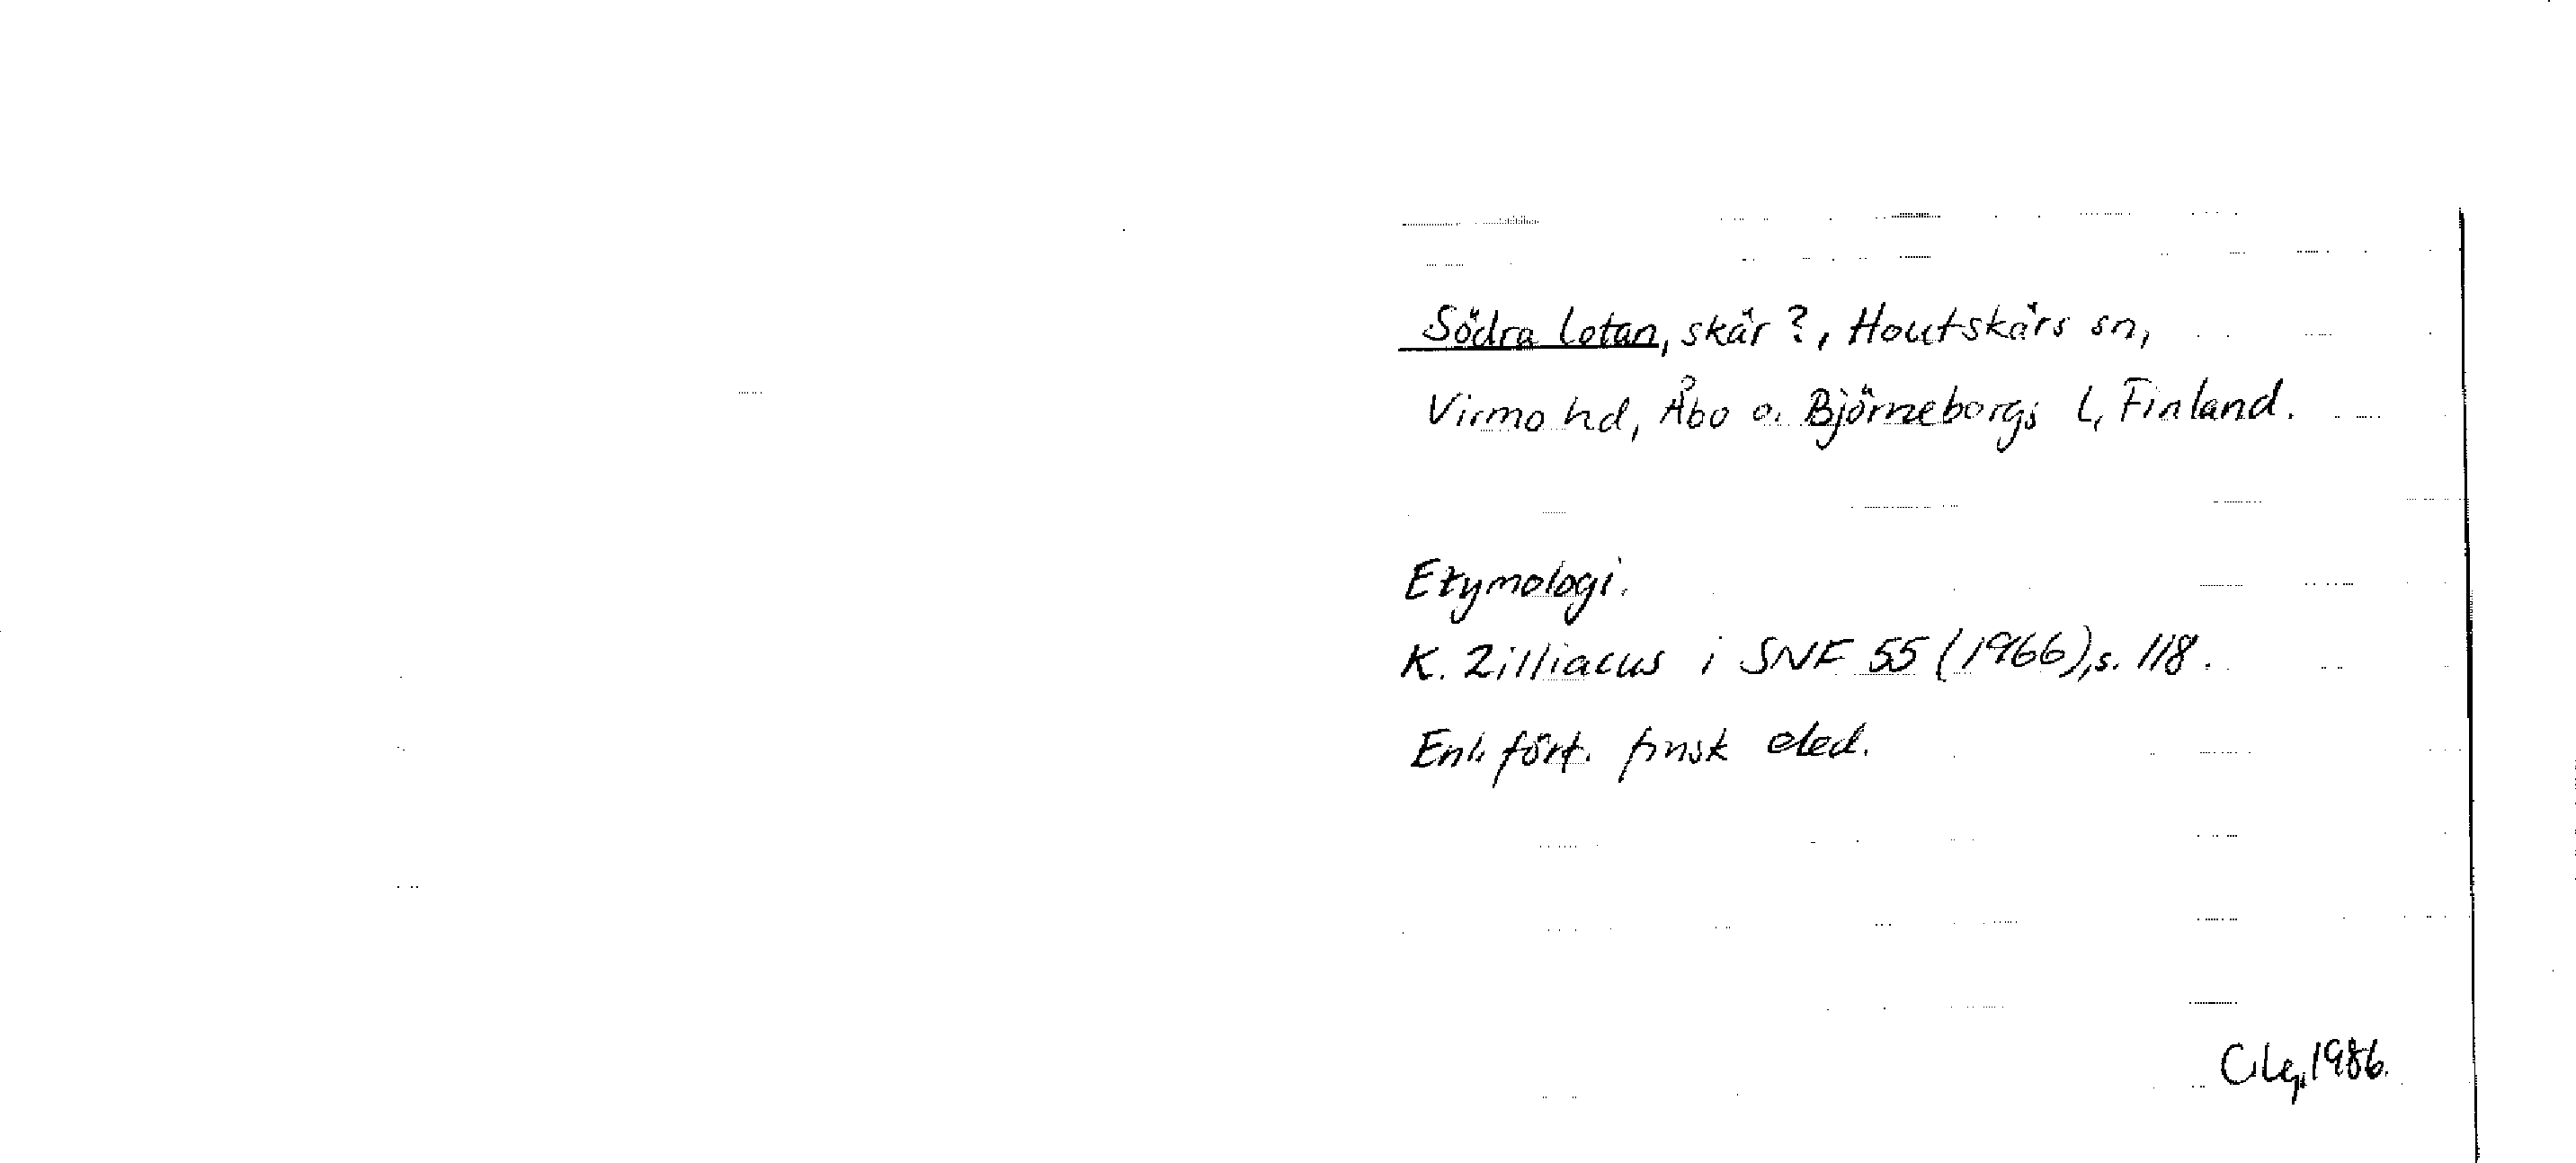 Södra Lotan, skär?, Houtskärs sn,
Virmo hd, Åbo o. Björneborgs l, Finland.
Etymologi.
K. Zilliacus i SNF 55 (1966), s. 118.
Enl. förf. finsk eled.
1986.